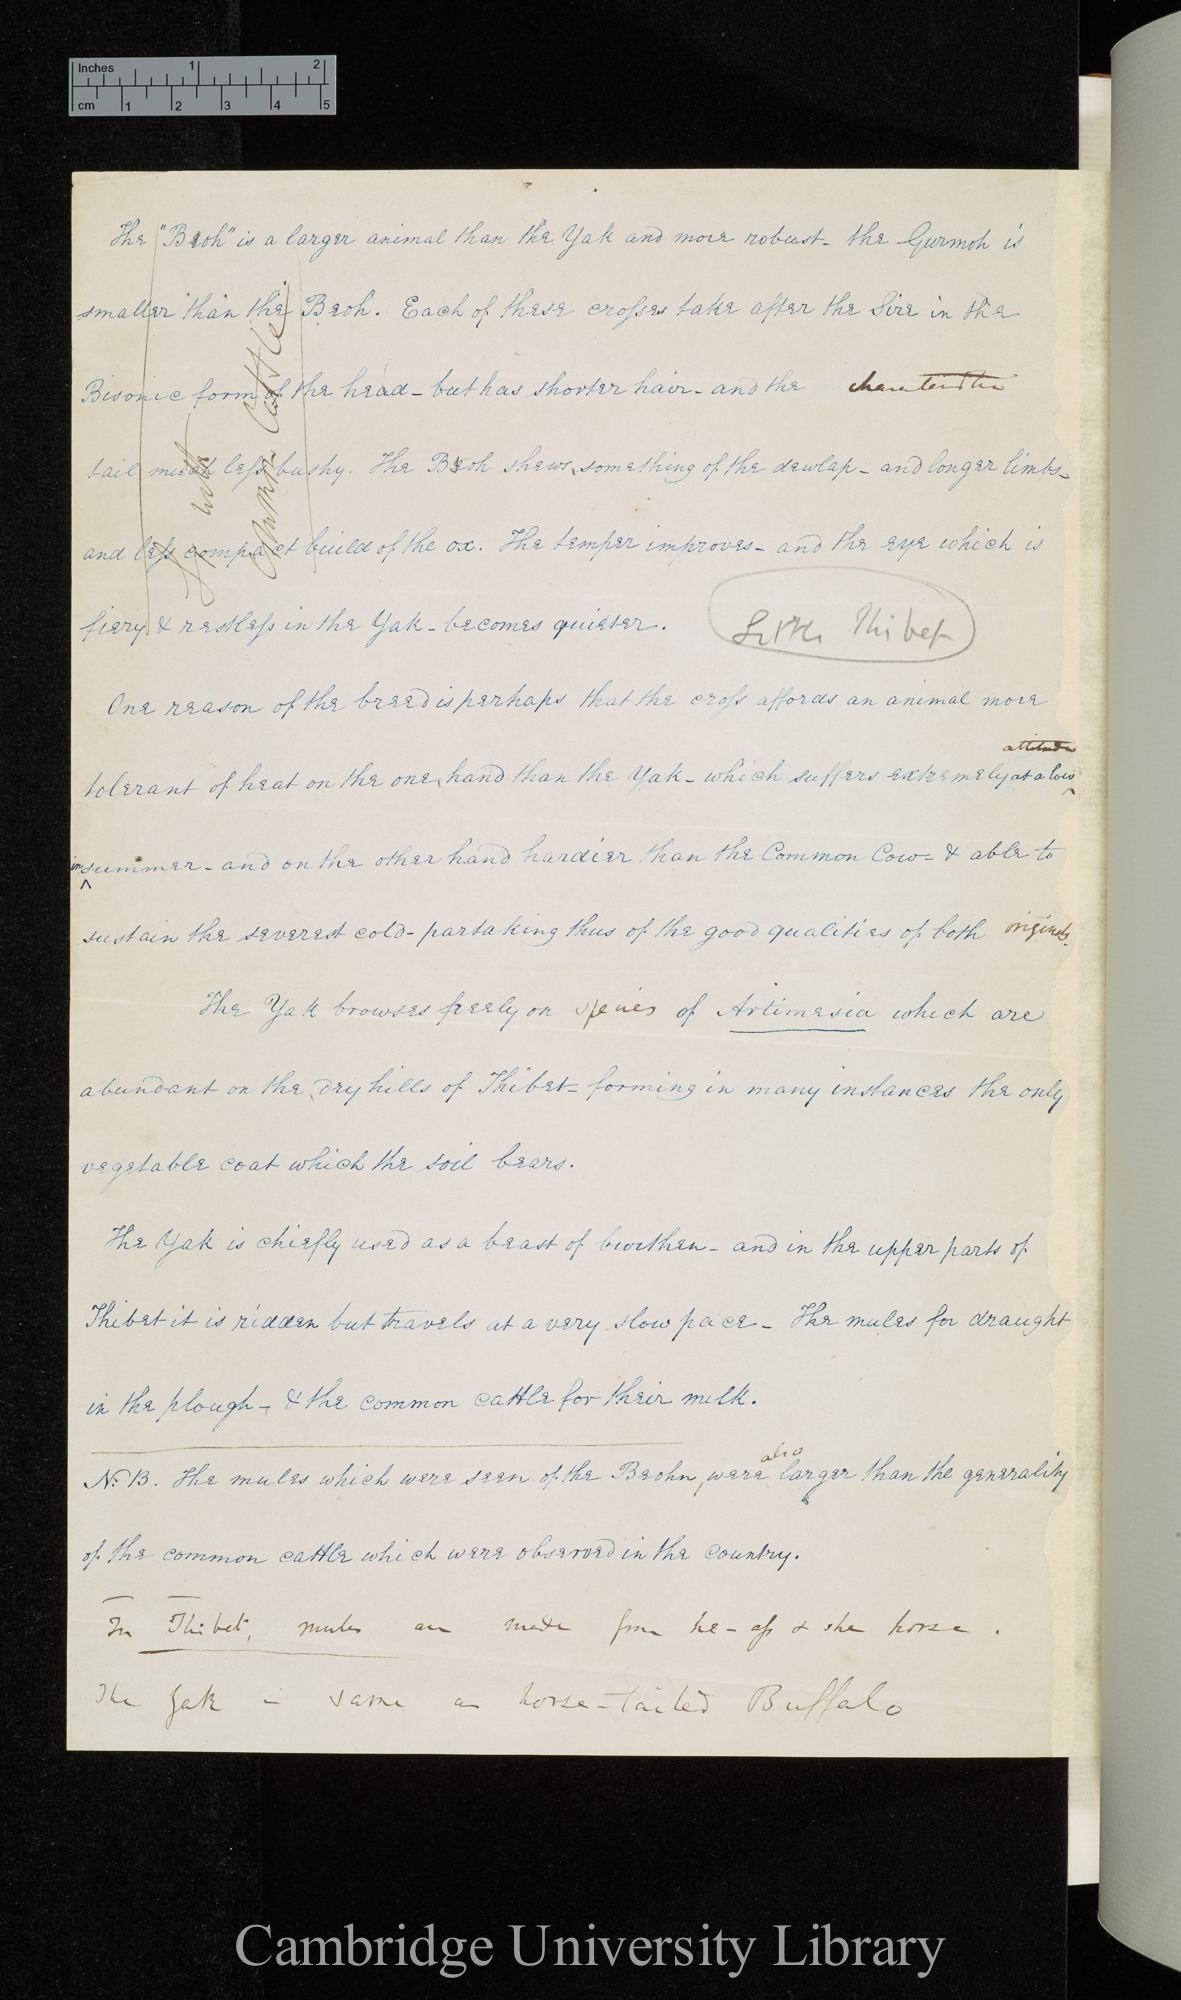 Inches 1 2
cm 1 2 3 4 5
The "Broh" is a larger animal than the Yak and more robust - the Gurmoh is
smaller than the Broh. Each of these crosses take after the Sire in the
Bisonic form of the head - but has shorter hair - and the characteristic
tail much less bushy. The Broh shews something of the dewlap - and longer limbs -
and less compact build of the ox. The temper improves - and the eye which is
fiery & restless in the Yak - becomes quieter.
Little Thibet
with
Common Cattle
One reason of the breed is perhaps that the cross affords an animal more
tolerant of heat on the one hand than the Yak - which suffers extremely at a low altitude
in summer - and on the other hand hardier than the Common Cow - & able to
sustain the severest cold - partaking thus of the good qualities of both originals.
The Yak browses freely on species of Artimesia which are
abundant on the dry hills of Thibet - forming in many instances the only
vegetable coat which the soil bears.
The Yak is chiefly used as a beast of burthen - and in the upper parts of
Thibet it is ridden but travels at a very slow pace - The mules for draught
in the plough - & the common cattle for their milk.
N.B. The mules which were seen of the Beohn, were also larger than the generality
of the common cattle which were observed in the country.
In Thibet, mules are made from he-ass & she horse.
The Yak is same as horse-tailed Buffalo
Cambridge University Library